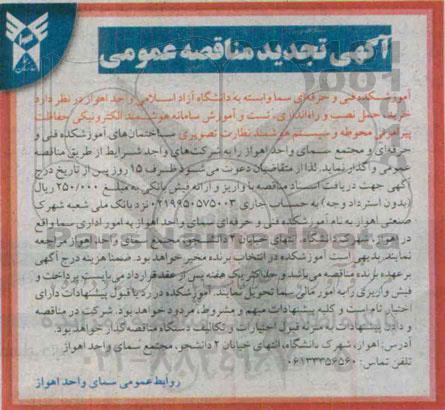 آگهی تجدید مناقصه عمومی
آموزشکده فنی و حرفه‌ای سما وابسته به دانشگاه آزاد اسلامی واحد اهواز در نظر دارد
خرید، حمل نصب و راه‌اندازی، تست و آموزش سامانه هوشمند الکترونیکی حفاظت
پیرامونی محوطه و سیستم هوشمند نظارت تصویری ساختمان‌های آموزشکده فنی و
حرفه‌ای و مجتمع سمای واحد اهواز را به شرکت‌های واجد شرایط از طریق مناقصه
عمومی واگذار نماید. لذا از متقاضیان دعوت می‌شود ظرف ۱۵ روز پس از تاریخ درج
آگهی جهت دریافت اسناد مناقصه با واریز و ارائه فیش بانکی به مبلغ ۲۵۰/۰۰۰ ریال
(بدون استرداد وجه) به حساب جاری ۰۲۱۹۹۵۰۵۷۵۰۰۳ نزد بانک ملی شعبه شهرک
صنعتی اهواز به نام آموزشکده فنی و حرفه‌ای سمای واحد اهواز به امور اداری سما واقع
در اهواز، شهرک دانشگاه، انتهای خیابان ۲ دانشجو، مجتمع سمای واحد اهواز مراجعه
نمایند. بدیهی است آموزشکده در انتخاب برنده مخیر خواهد بود. ضمنا هزینه درج آگهی
بر عهده برنده مناقصه می‌باشد و حداکثر یک هفته پس از عقد قرارداد می‌بایست پرداخت و
فیش واریزی را به امور مالی سما تحویل نمایند. آموزشکده در رد یا قبول پیشنهادات دارای
اختیار تام است و کلیه پیشنهادات مبهم و مشروط، مردود خواهد بود. شرکت در مناقصه
و دادن پیشنهاد به منزله قبول اختیارات و تکالیف دستگاه مناقصه گذار خواهد بود.
آدرس: اهواز، شهرک دانشگاه، انتهای خیابان ۲ دانشجو، مجتمع سمای واحد اهواز
تلفن تماس: ۰۶۱۳۳۳۵۶۵۶۰
روابط عمومی سمای واحد اهواز